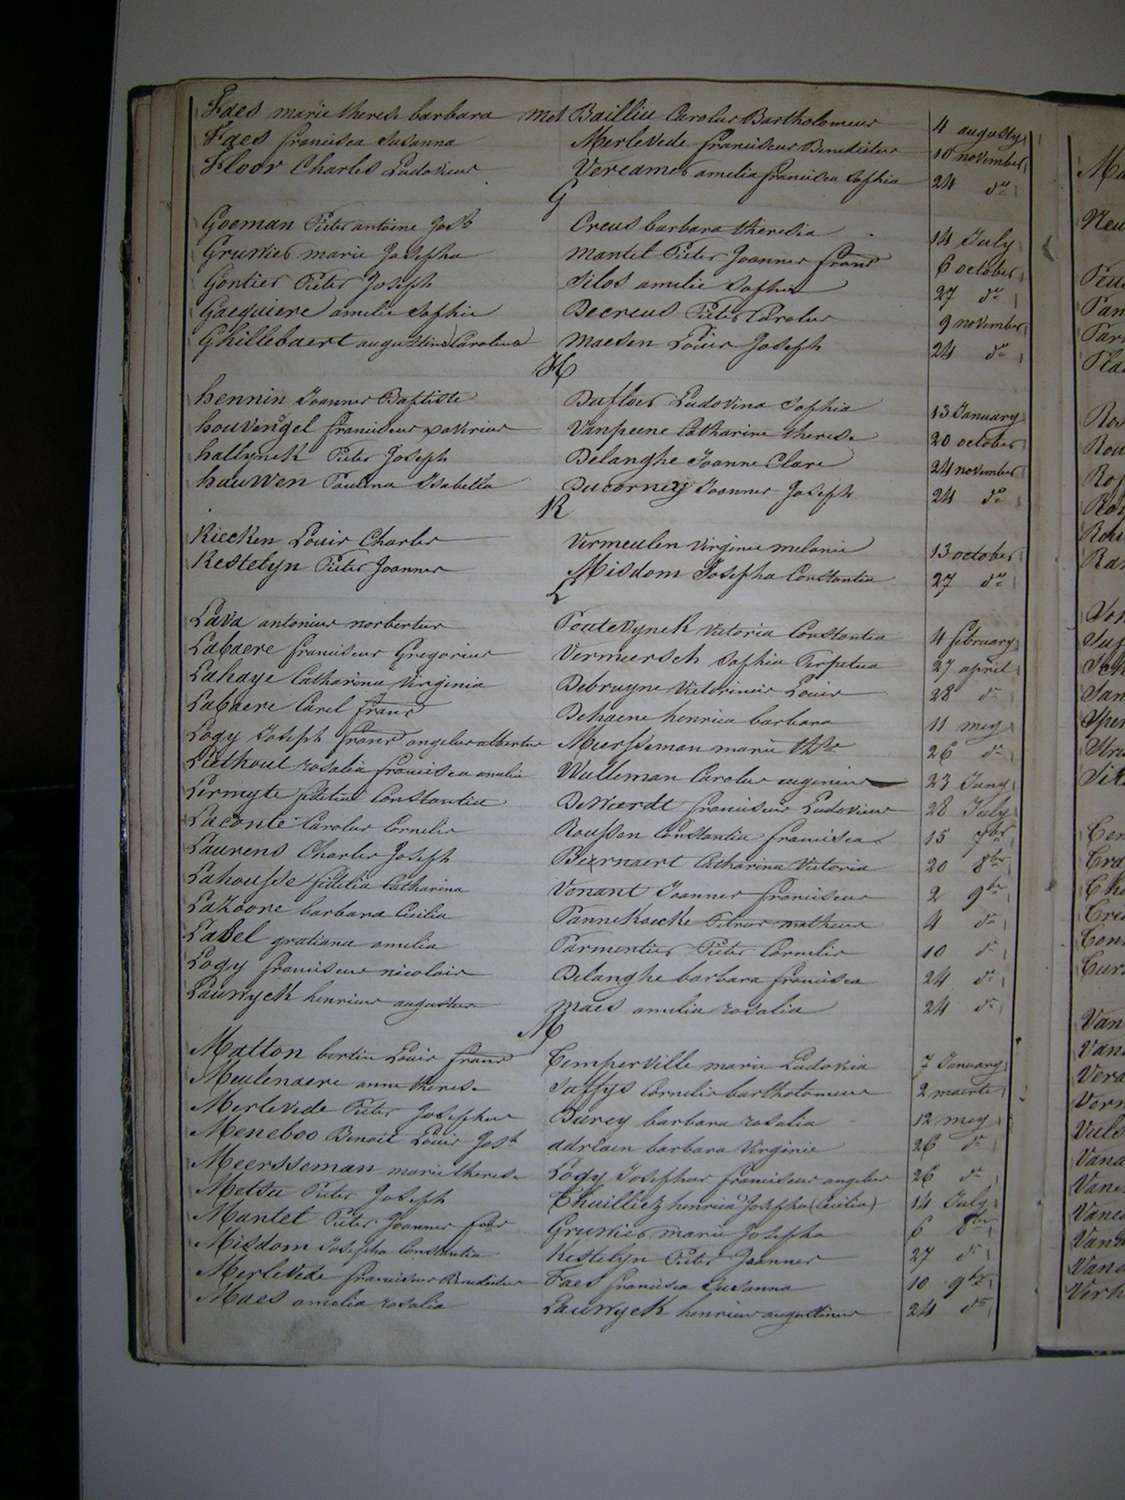 Faes marie therese barbara met Bailliu Carolus Bartholomeus 4 augusty
Faes francisca Susanna Merlevede franciscus Benedictus 10 november
Floor Charles Ludovicus Vercamer amelia francisca Sophia 24 do
G
Goeman Pieter antoine Josh Creus barbara theresia 14 July
Gruwier marie Josepha Mantel Pieter Joannes frans 6 october
Gontier Pieter Joseph Silos amelie Sophia 27 do
Gaequiere amelie Sophie Decreus Pieter Carolus 9 november
Ghillebaert augustine Carolina Maesen Louis Joseph 24 do
H
hennin Joannes Baptiste Duflou Ludovina Sophia 13 January
houvengel franciscus xaverius Vanpeene Catharine therese 20 october
hallynck Pieter Joseph Delanghe Joanne Clare 24 november
hauwen Paulina Isabella Ducorney Joannes Joseph 24 do
K
Kiecken Louis Charles Vermeulen Virginie melanie 13 october
Kestelyn Pieter Joannes Misdom Josepha Constantia 27 do
L
Lava antonius norbertus Poutevynck Victoria Constantia 4 february
Labaere franciscus Gregorius Vermeersch Sophia Perpetua 27 april
Lahaye Catharina Virginia Debruyne Louis 28 do
Labaere Carel frans Dehaene henrica barbara 11 mey
Logy Joseph frans angelus albertus Meersseman marie ther 26 do
Liethout rosalia francisca amelie Wulleman Carolus eugenius 23 Juny
Lermyte fidelia Constantia DeWeerdt franciscus Ludovicus 28 July
Laconte Carolus Cornelis Roussen Constantia francisca 15 7br
Laurens Charles Joseph Beernaert Catharina Victoria 20 8br
Lahousse fidelia Catharina Vonant Joannes franciscus 2 9br
Lazoore barbara Cecilia Pannekoecke Petrus matheus 4 do
Label gratiana amelia Parmentier Pieter Cornelis 10 do
Logy franciscus nicolais Delanghe barbara francisca 24 do
Lauwyck henricus augustus Maes amelia rosalia 24 do
M
Matton bertin Louis frans Temperville marie Ludovica 7 January
Meulenaere anne therese Saffys Cornelis bartholomeus 2 maerte
Merlevede Pieter Josephus Durey barbara rosalia 12 mey
Meneboo Benoit Louis Josh adriaen barbara Virginie 26 do
Meersseman marie therese Logy Josephus franciscus angelus 26 do
Metsu Pieter Joseph Thuilliez henrica Josepha (Cecilia) 14 July
Mantel Pieter Joannes fras Gruwier marie Josepha 6 8br
Misdom Josepha Constantia Kestelyn Pieter Joannes 27 do
Merlevede franciscus Benedictus Faes francisca Susanna 10 9br
Maes amelia rosalia Lauwyck henricus augustinus 24 do